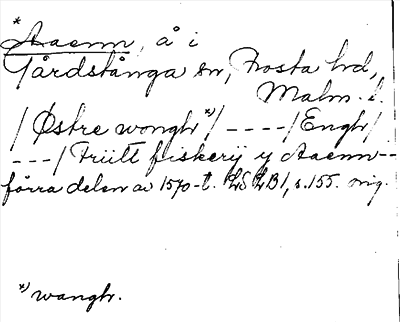 *
Aaenn, å i
Gårdstånga sn, Frosta hd,
Malm. l.
/Østre wongh*)/ ----/Engh/
---/Friitt fiskerij y Aaenn--
förra delen av 1570-t. LSLB1, s.155. orig.
*) wangh.